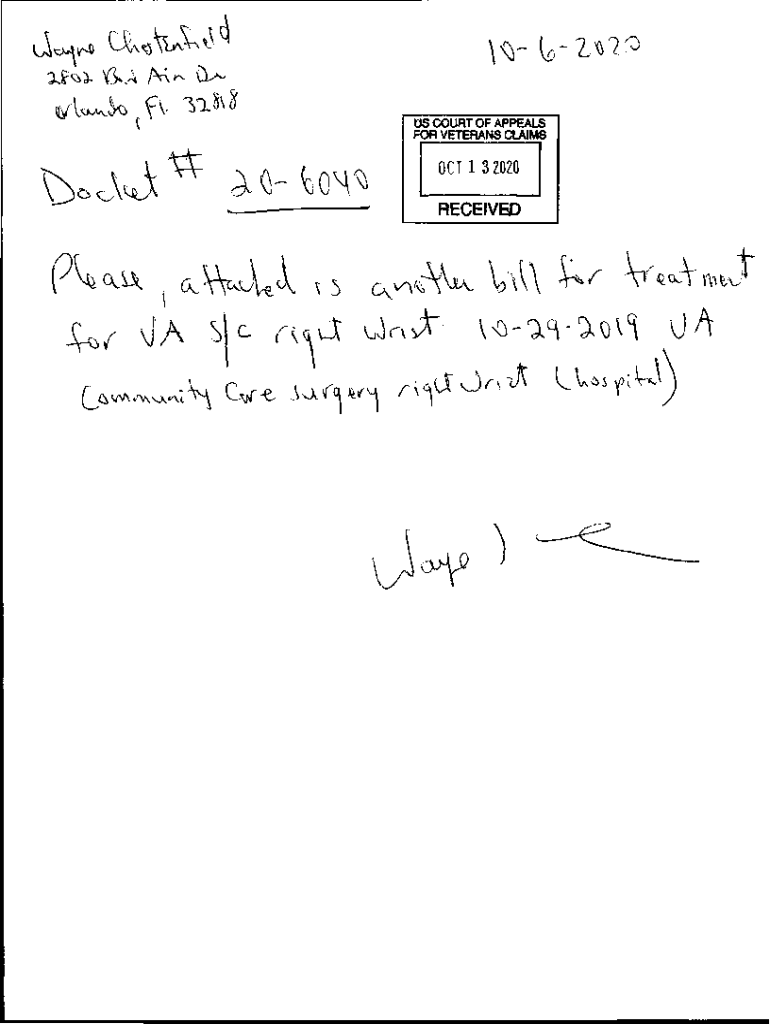 Wayne
10-6-2020
2802 Air Dr
Orlando, Fl. 32818
US COURT OF APPEALS
FOR VETERANS CLAIMS
OCT 13 2020
RECEIVED
Docket # 20-6040
Please, attached is another bill for treatment
for VA S/C right wrist 10-29-2019 VA
Community Care surgery right wrist (hospital)
Wayne